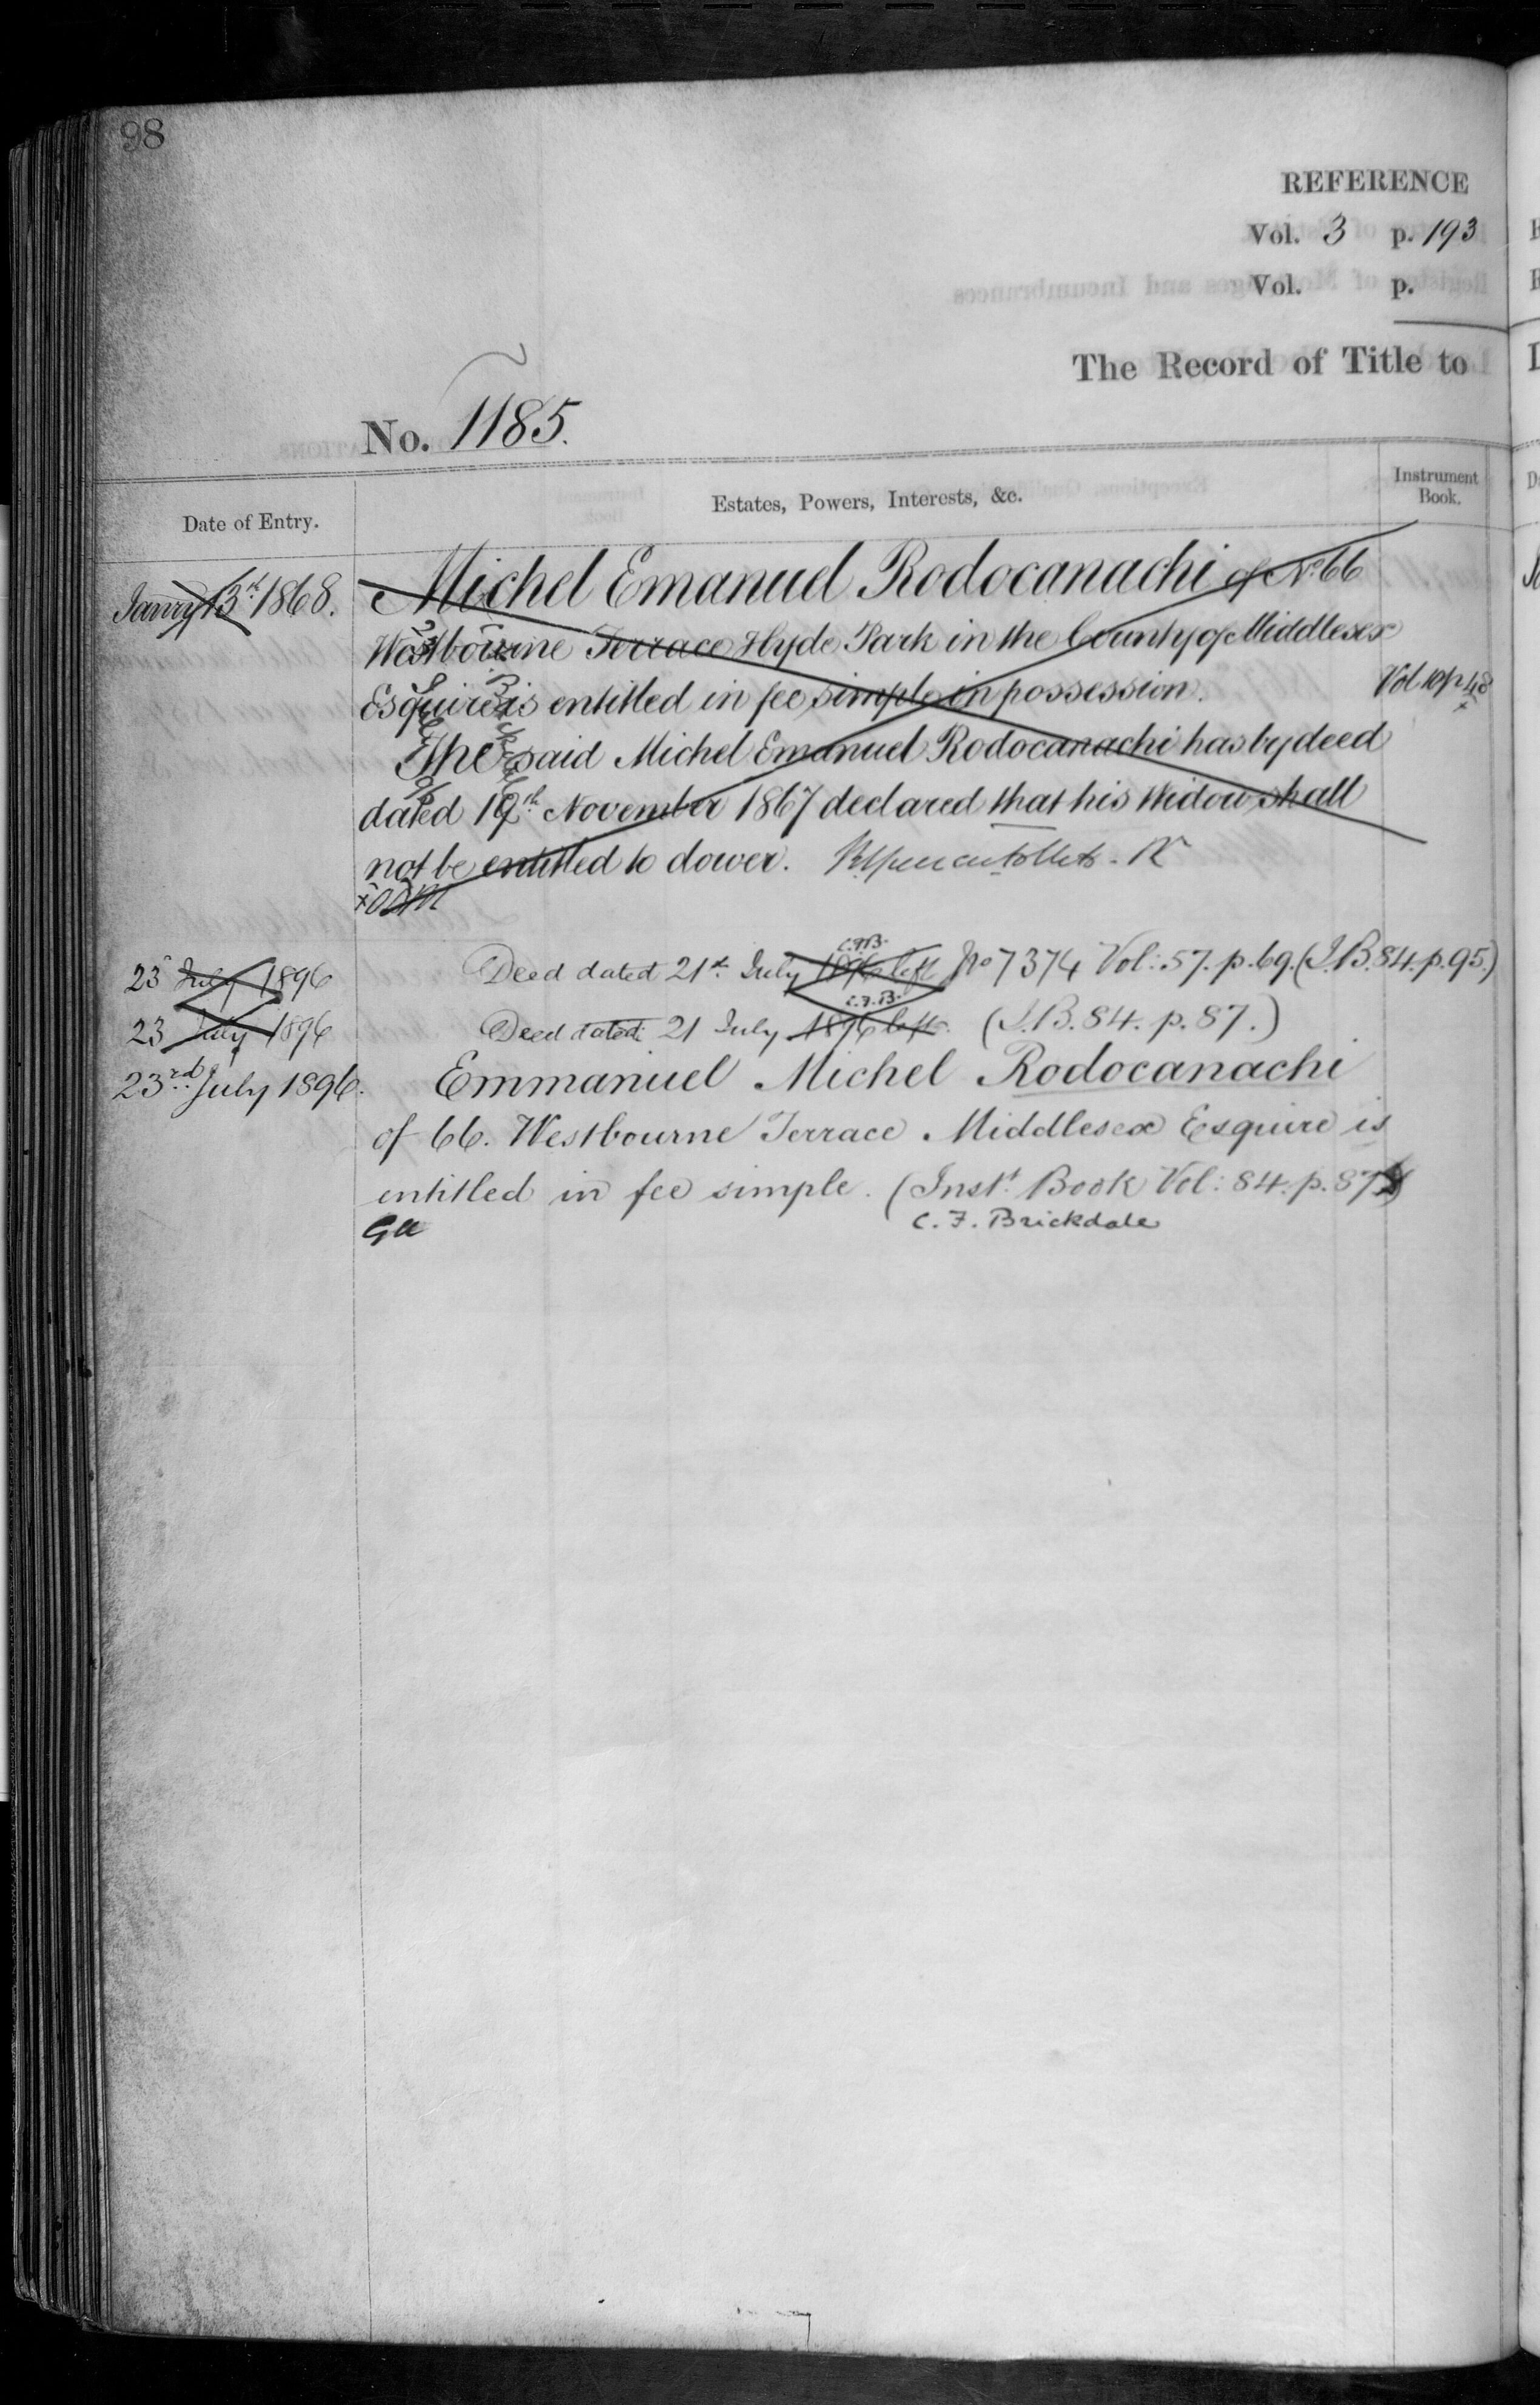 98
REFERENCE
Vol. 3 p. 193
Vol. p.
The Record of Title to
No. 1185.
Date of Entry.
Estates, Powers, Interests, &c.
Instrument Book.
Janry 13th 1868.
Michel Emanuel Rodocanachi of No. 66
Westbourne Terrace Hyde Park in the County of Middlesex
Esquire is entitled in fee simple in possession.
Vol 10 p 48
The said Michel Emanuel Rodocanachi has by deed
dated 19th November 1867 declared that his Widow shall
not be entitled to dower.
23 July 1896
Deed dated 21st July 1896 left No 7374 Vol: 57. p. 69. (I.B. 84. p. 95.)
C.F.B.
23 July 1896
Deed dated 21 July 1896 left. (I.B. 84. p. 87.)
C.F.B.
23rd July 1896.
Emmanuel Michel Rodocanachi
of 66. Westbourne Terrace Middlesex Esquire is
entitled in fee simple. (Inst. Book Vol: 84. p. 87)
C. F. Brickdale